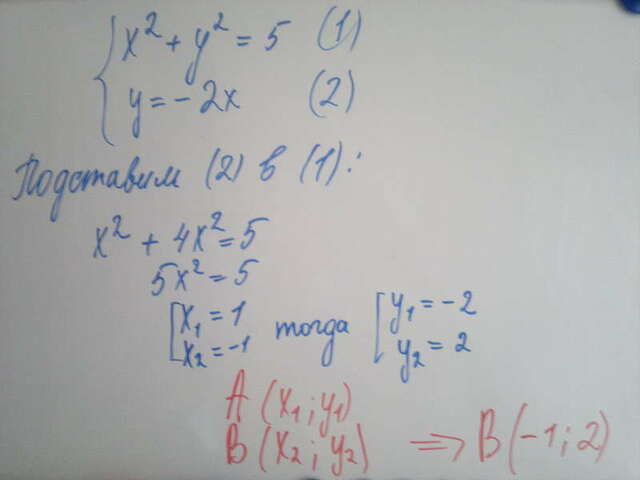 x² + y² = 5 (1)
y = - 2x (2)
Подставим (2) в (1):
x² + 4x² = 5
5x² = 5
x₁ = 1 тогда y₁ = -2
x₂ = -1 y₂ = 2
A (x₁; y₁)
B (x₂; y₂) ⇒ B (-1; 2)